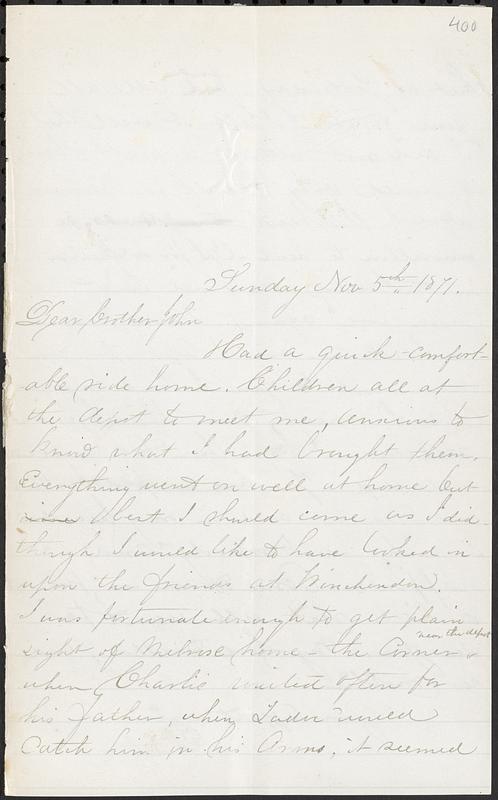 400
Sunday Nov 5th 1871.
Dear brother John
Had a quick comfort-
able ride home. Children all at
the depot to meet me, anxious to
know what I had brought them.
Everything went on well at home but
best I should come as I did-
though I would like to have looked in
upon the friends at Winchendon.
I was fortunate enough to get plain
near the depot
sight of Melrose home - the Corner
when Charlie waited often for
his Father, when would
catch him in his Arms, it seemed